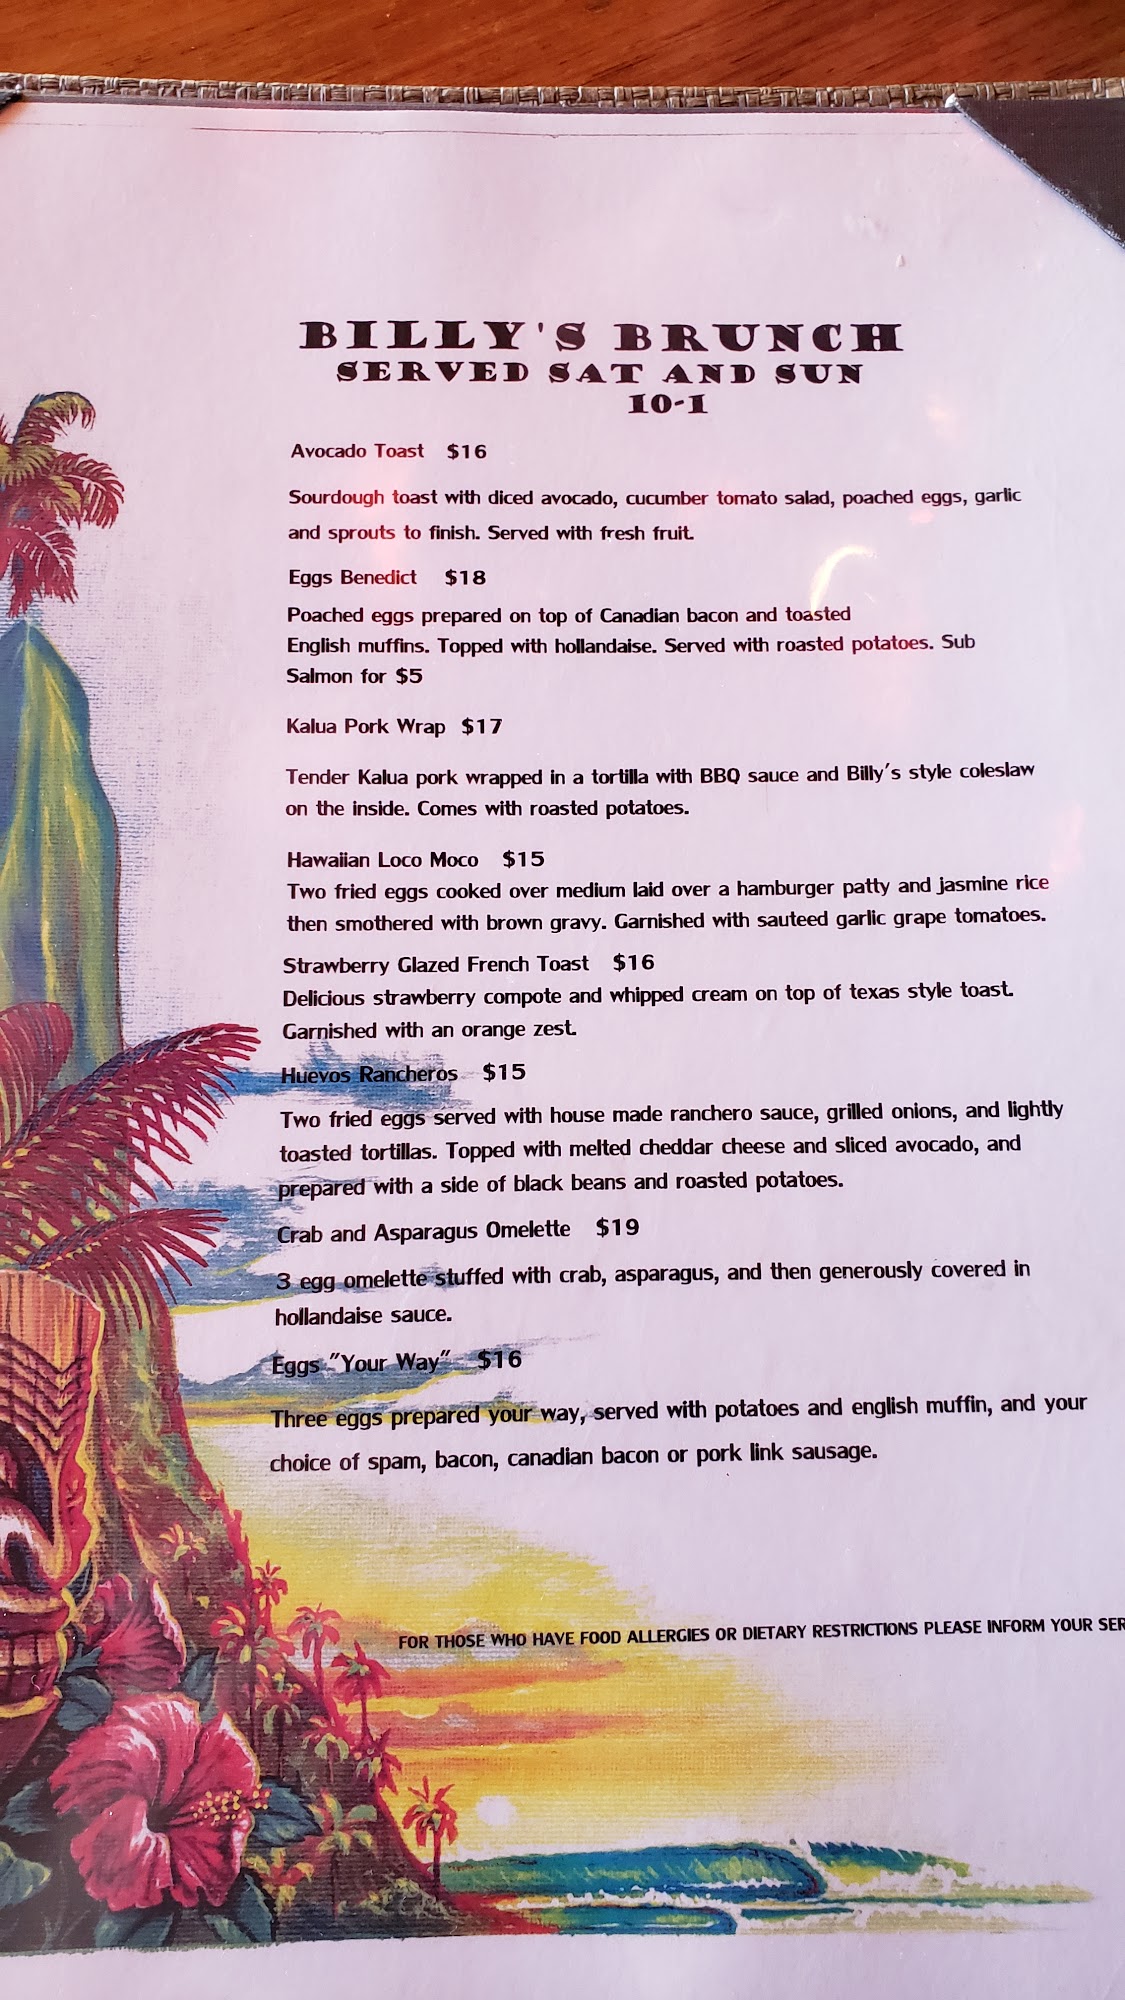 BILLY'S BRUNCH
SERVED SAT AND SUN
10-1
Avocado Toast $16
Sourdough toast with diced avocado, cucumber tomato salad, poached eggs, garlic
and sprouts to finish. Served with fresh fruit.
Eggs Benedict $18
Poached eggs prepared on top of Canadian bacon and toasted
English muffins. Topped with hollandaise. Served with roasted potatoes. Sub
Salmon for $5
Kalua Pork Wrap $17
Tender Kalua pork wrapped in a tortilla with BBQ sauce and Billy's style coleslaw
on the inside. Comes with roasted potatoes.
Hawaiian Loco Moco $15
Two fried eggs cooked over medium laid over a hamburger patty and jasmine rice
then smothered with brown gravy. Garnished with sauteed garlic grape tomatoes.
Strawberry Glazed French Toast $16
Delicious strawberry compote and whipped cream on top of texas style toast.
Garnished with an orange zest.
Huevos Rancheros $15
Two fried eggs served with house made ranchero sauce, grilled onions, and lightly
toasted tortillas. Topped with melted cheddar cheese and sliced avocado, and
prepared with a side of black beans and roasted potatoes.
Crab and Asparagus Omelette $19
3 egg omelette stuffed with crab, asparagus, and then generously covered in
hollandaise sauce.
Eggs "Your Way" $16
Three eggs prepared your way, served with potatoes and english muffin, and your
choice of spam, bacon, canadian bacon or pork link sausage.
FOR THOSE WHO HAVE FOOD ALLERGIES OR DIETARY RESTRICTIONS PLEASE INFORM YOUR SER